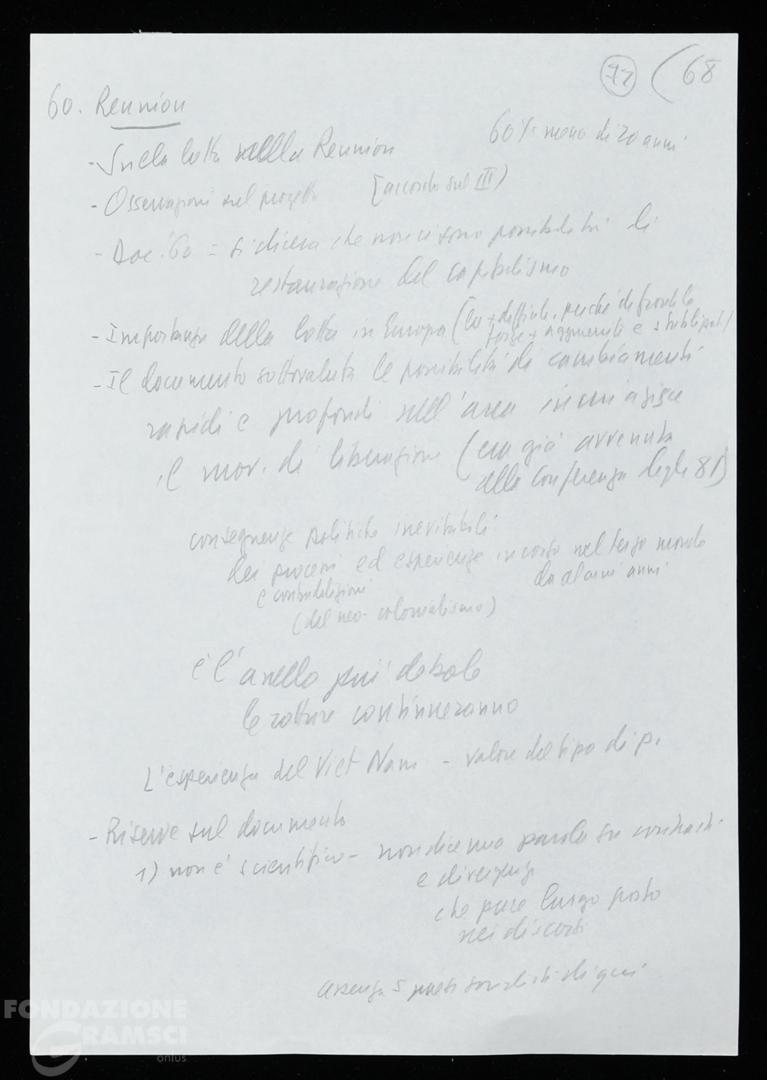 72 (68
60. Reunion
60% meno di 20 anni
- Sulla lotta nella Reunion
- Osservazioni sul progetto [accordo sul III)
- Doc. '60 = si diceva che non ci sono possibilità di
restaurazione del capitalismo
- Importanza della lotta in Europa ( + difficile, perché di fronte
forze + agguerrite e
- Il documento sottovaluta le possibilità di cambiamenti
rapidi e profondi nell'area in cui agisce
il mov. di liberazione (era già avvenuto
alla Conferenza degli 81)
conseguenze politiche inevitabili
dei processi ed esperienze in corso nel terzo mondo
e contraddizioni da alcuni anni
(del neo-colonialismo)
è l'anello più debole
le rotture continueranno
L'esperienza del Viet Nam - valore del tipo di p.
- Riserve sul documento
1) non è scientifico - non dice una parola su contrasti
e divergenze
che pure hanno posto
nei discorsi
assenza 5 paesi socialisti di qui
FONDAZIONE
GRAMSCI
onlus